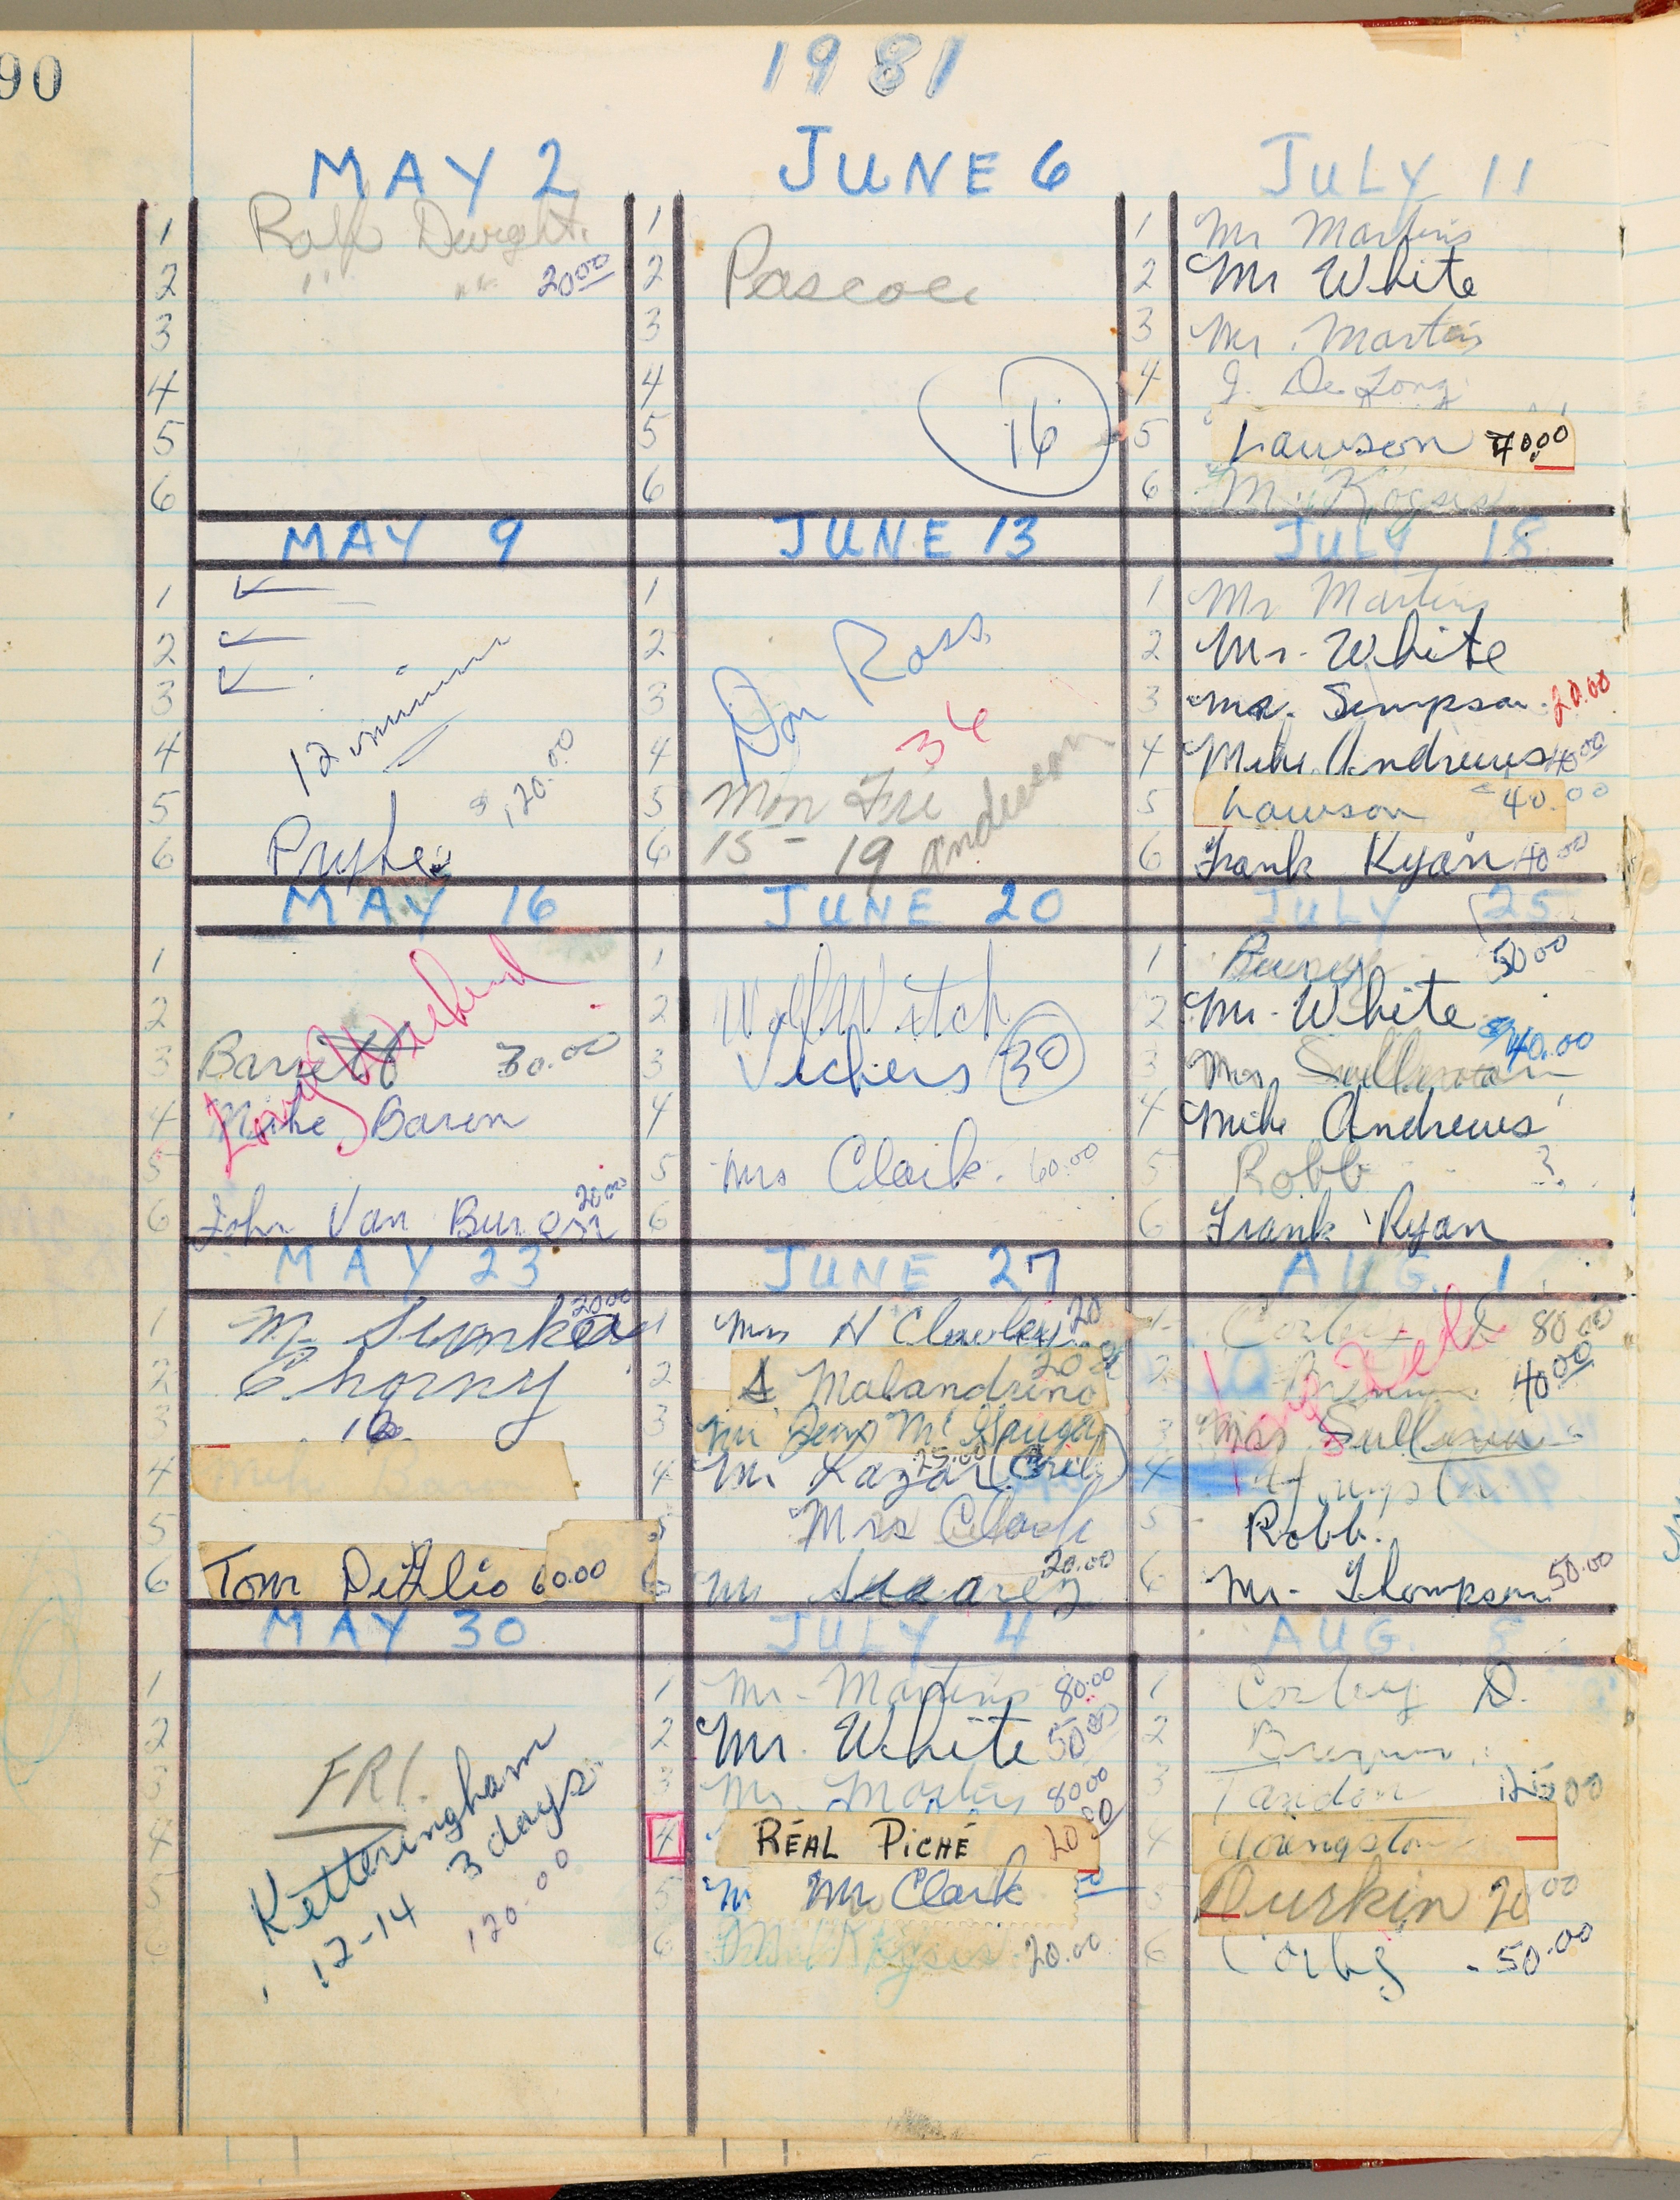 90
1981
MAY 2
1 Ralph Dwight
2 " " 20.00
3
4
5
6
MAY 9
1
2
3
4 12 minimum
5 $120.00
6 Pryke
MAY 16
Long Weekend
1
2
3 Barrett 30.00
4 Mike Baron
5
6 John Van Buren 20.00
MAY 23
1 M 20.00
2 Chorny
3 12
4 Mike Baron
5
6 Tom 60.00
MAY 30
1
2
3 FRI.
4 Ketteringham
5 12-14 3 days
6 120.00
JUNE 6
1
2 Pascoe
3
4
5 16
6
JUNE 13
1
2 Don Ross
3
4 34
5 Mon Fri
6 15 - 19 Anderson
JUNE 20
1
2 Witch
3 Vickers 30
4
5 Mrs Clark. 60.00
6
JUNE 27
1 Mrs H 20
2 S. Malandrino 20
3 Mr
4 Mr Lazar 25.00
5 Mrs Clark
6 Mr Suarez 20.00
JULY 4
1 Mr. Martins 80.00
2 Mr. White 50.00
3 Mr. Martins 80.00
4 RÉAL PICHÉ 20.00
5 Mr Clark
6 20.00
JULY 11
1 Mr Martins
2 Mr White
3 Mr. Martins
4 J. DeLong
5 Lawson 40.00
6 Mr. Kocsis
JULY 18
1 Mr Martins
2 Mr. White
3 Mr. Simpson. 20.00
4 Mike Andrews 40.00
5 Lawson 40.00
6 Frank Ryan 40.00
JULY 25
1 50.00
2 Mr. White
3 Mrs Sullivan 40.00
4 Mike Andrews
5 Robb ?
6 Frank Ryan
AUG. 1
1 Corbey D 80.00
2 40.00
3 Mrs Sullivan
4
5 Robb.
6 Mr. Thompson 50.00
AUG. 8
1 Corbey D.
2
3 Tandon 125.00
4 Youngston
5 Durkin 20.00
6 Corby 50.00